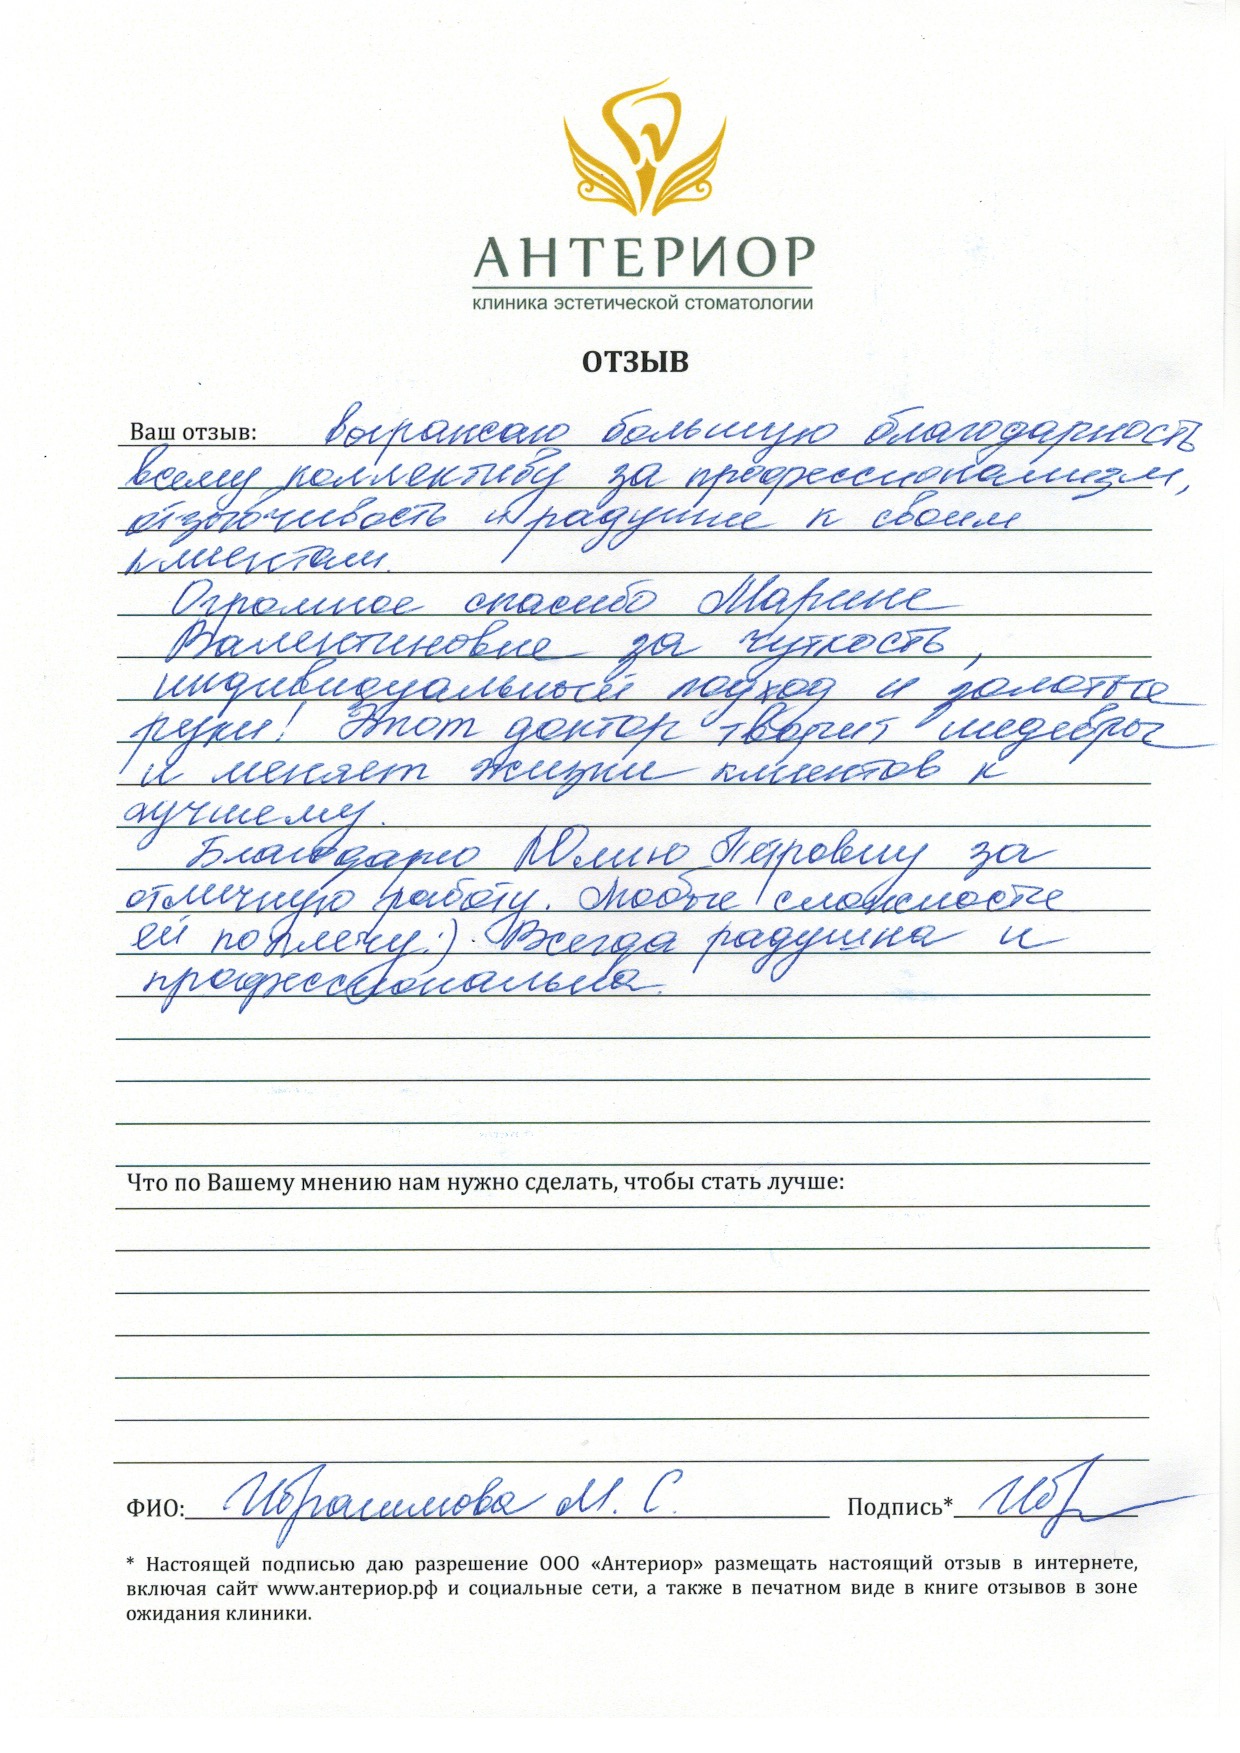 АНТЕРИОР
клиника эстетической стоматологии
ОТЗЫВ
Ваш отзыв: выражаю большую благодарность
всему коллективу за профессионализм,
отзывчивость и радушие к своим
клиентам.
Огромное спасибо Марине
Валентиновне за чуткость,
индивидуальный подход и золотые
руки! Этот доктор творит шедевры
и меняет жизни клиентов к
лучшему.
Благодарю Юлию Петровну за
отличную работу. Любые сложности
ей по плечу:). Всегда радушна и
профессиональна.
Что по Вашему мнению нам нужно сделать, чтобы стать лучше:
ФИО: Ибрагимова М. С. Подпись* Ибр
* Настоящей подписью даю разрешение ООО «Антериор» размещать настоящий отзыв в интернете,
включая сайт www.антериор.рф и социальные сети, а также в печатном виде в книге отзывов в зоне
ожидания клиники.